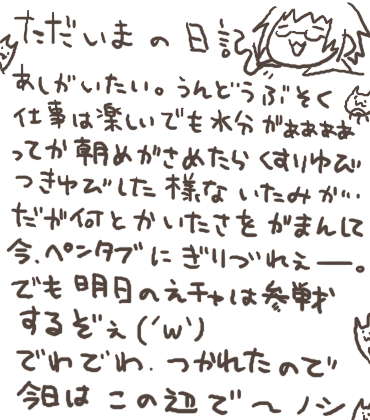 ただいまの日記
あしがいたい。うんどうぶそく
仕事は楽しいでも水分がぁぁぁぁ
ってか朝めがさめたらくすりゆび
つきゆびした様ないたみが…
だが何とかいたさをがまんして
今、ペンタブにぎりづれぇー。
でも明日のえチャは参戦
するぞぇ(´ω`)
でわでわ、つかれたので
今日はこの辺で〜ノシ